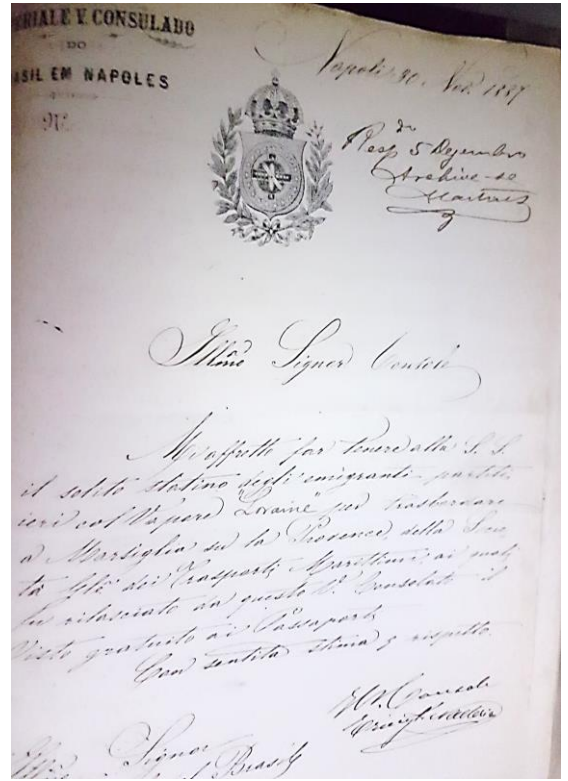 ERIALE V. CONSULADO
DO
ASIL EM NAPOLES
Napoli 30. Nov. 1887
Resp.do 5 Dezembro
Archive-se
Illmo Signor Console
Mi affretto far tenere alla S. S.
il solito statino degli emigranti partiti
ieri col Vapore "Loraine" per trasbordare
a Marsiglia su la Provence, della Socie
tà Gle dei Trasporti Marittimi, ai quali
fu rilasciato da questo V. Consolato il
Visto gratuito ai Passaporti
Con sentita stima e rispetto
Il V. Console
Signor
Brasile